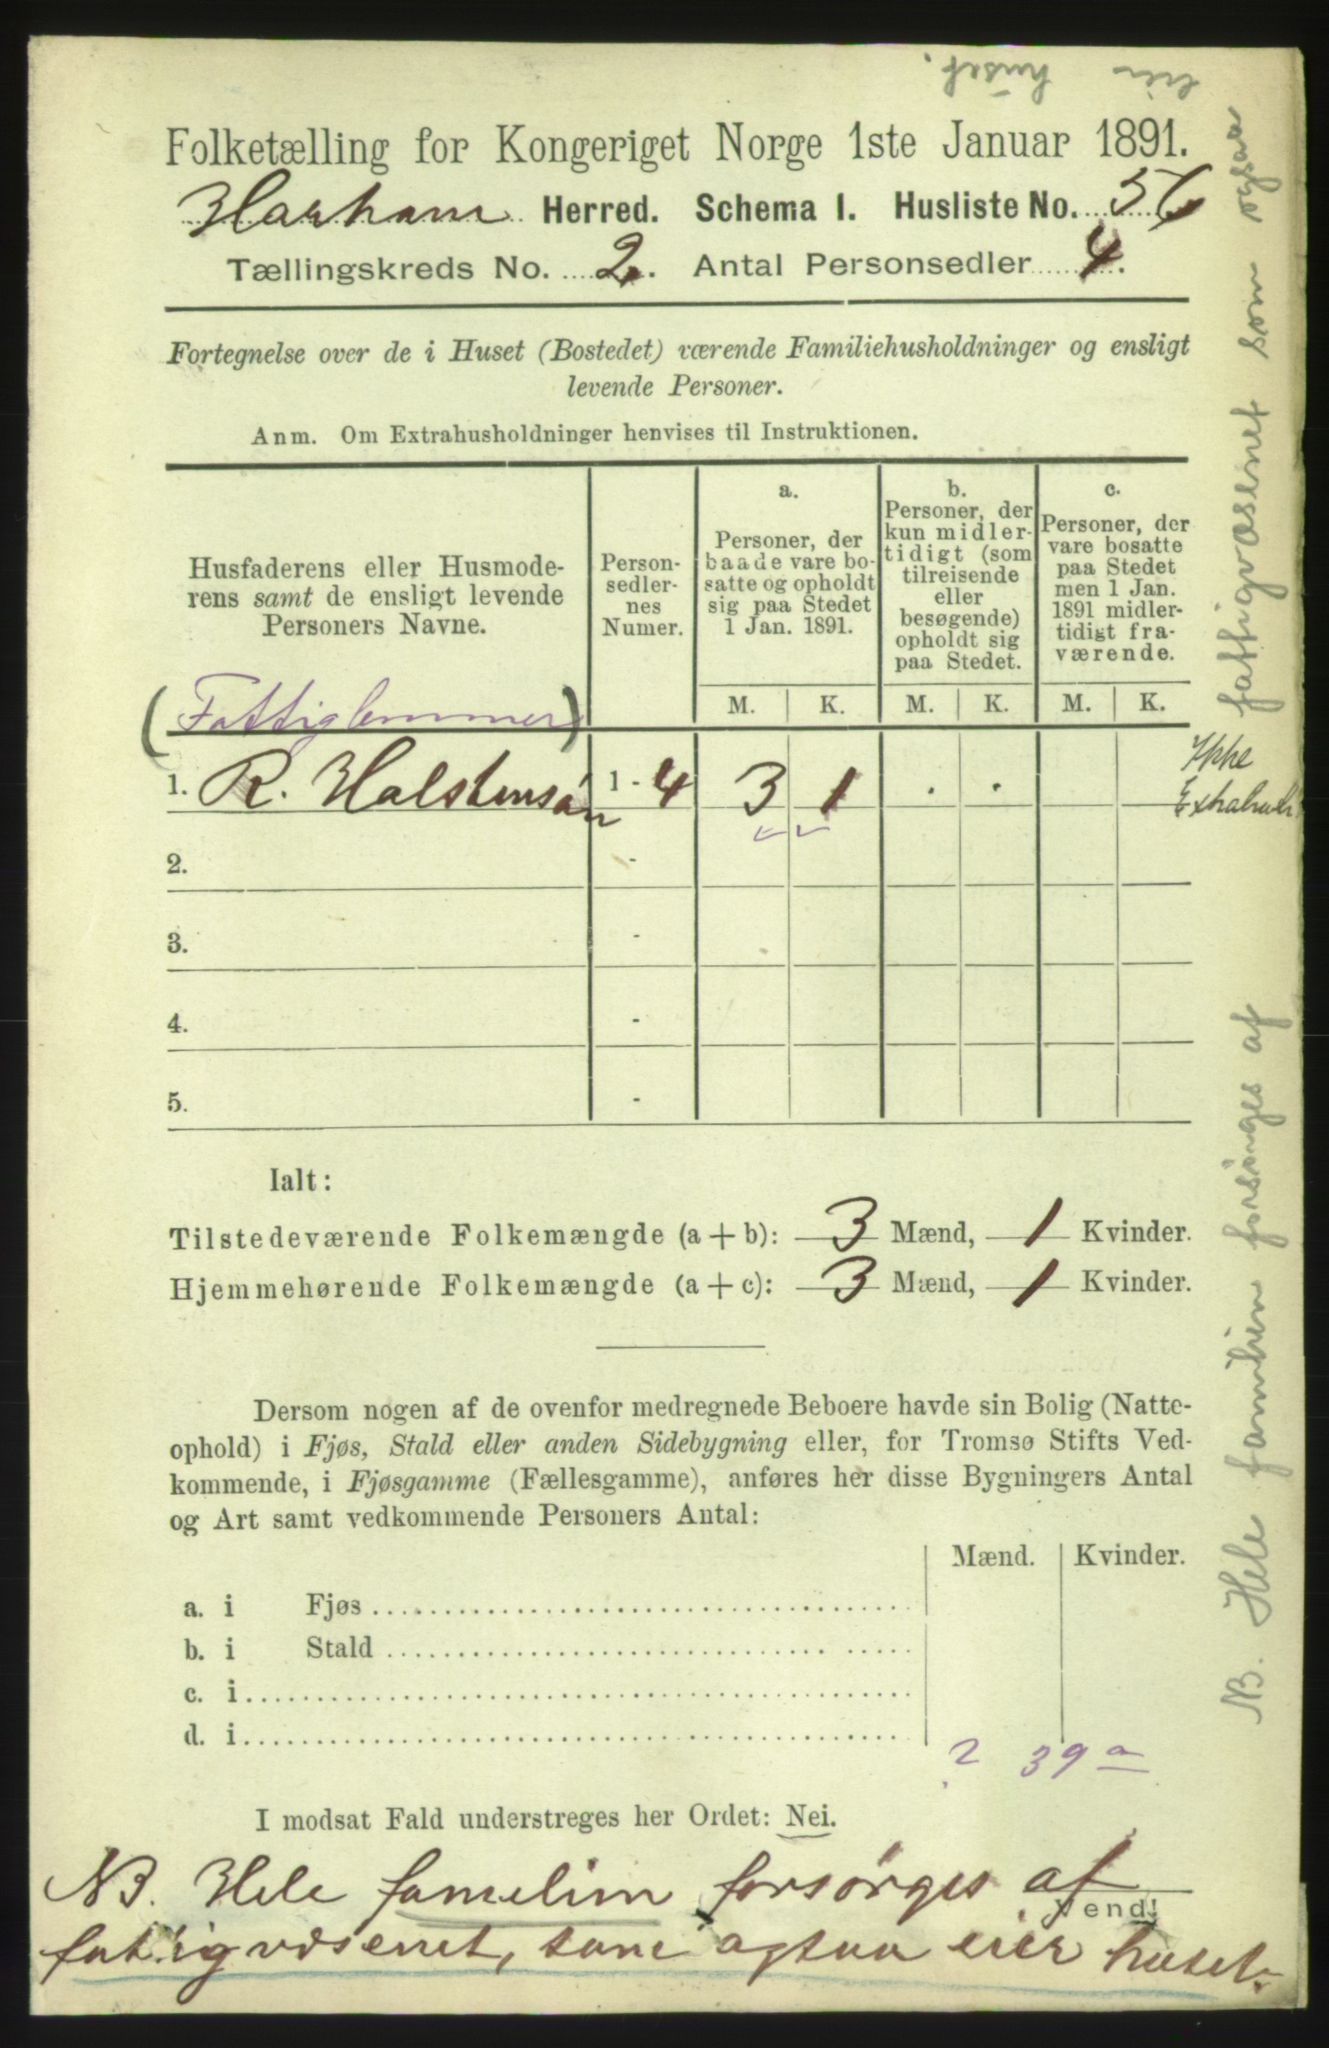 eier huset.
Folketælling for Kongeriget Norge 1ste Januar 1891.
Harham Herred. Schema I. Husliste No. 56
Tællingskreds No. 2. Antal Personsedler 4.
Fortegnelse over de i Huset (Bostedet) værende Familiehusholdninger og ensligt
levende Personer.
Anm. Om Extrahusholdninger henvises til Instruktionen.
Husfaderens eller Husmode-
rens samt de ensligt levende
Personers Navne.
Person-
sedler-
nes
Numer.
a.
Personer, der
baade vare bo-
satte og opholdt
sig paa Stedet
1 Jan. 1891.
b.
Personer, der
kun midler-
tidigt (som
tilreisende
eller
besøgende)
opholdt sig
paa Stedet.
c.
Personer, der
vare bosatte
paa Stedet
men 1 Jan.
1891 midler-
tidigt fra-
værende.
M. K. M. K. M. K.
(Fattiglemmer)
1. R. Halstensøn 1 - 4 3 1 . .
Ikke
2. -
3. -
4. -
5. -
Ialt:
Tilstedeværende Folkemængde (a + b): 3 Mænd, 1 Kvinder.
Hjemmehørende Folkemængde (a + c): 3 Mænd, 1 Kvinder.
Dersom nogen af de ovenfor medregnede Beboere havde sin Bolig (Natte-
ophold) i Fjøs, Stald eller anden Sidebygning eller, for Tromsø Stifts Ved-
kommende, i Fjøsgamme (Fællesgamme), anføres her disse Bygningers Antal
og Art samt vedkommende Personers Antal:
Mænd. Kvinder.
a. i Fjøs
b. i Stald
c. i
d. i
? 39 a
I modsat Fald understreges her Ordet: Nei.
Vend!
NB. Hele familien forsørges af
fattigvæsenet, som ogsaa eier huset.
NB. Hele familien forsørges af fattigvæsenet som ogsaa